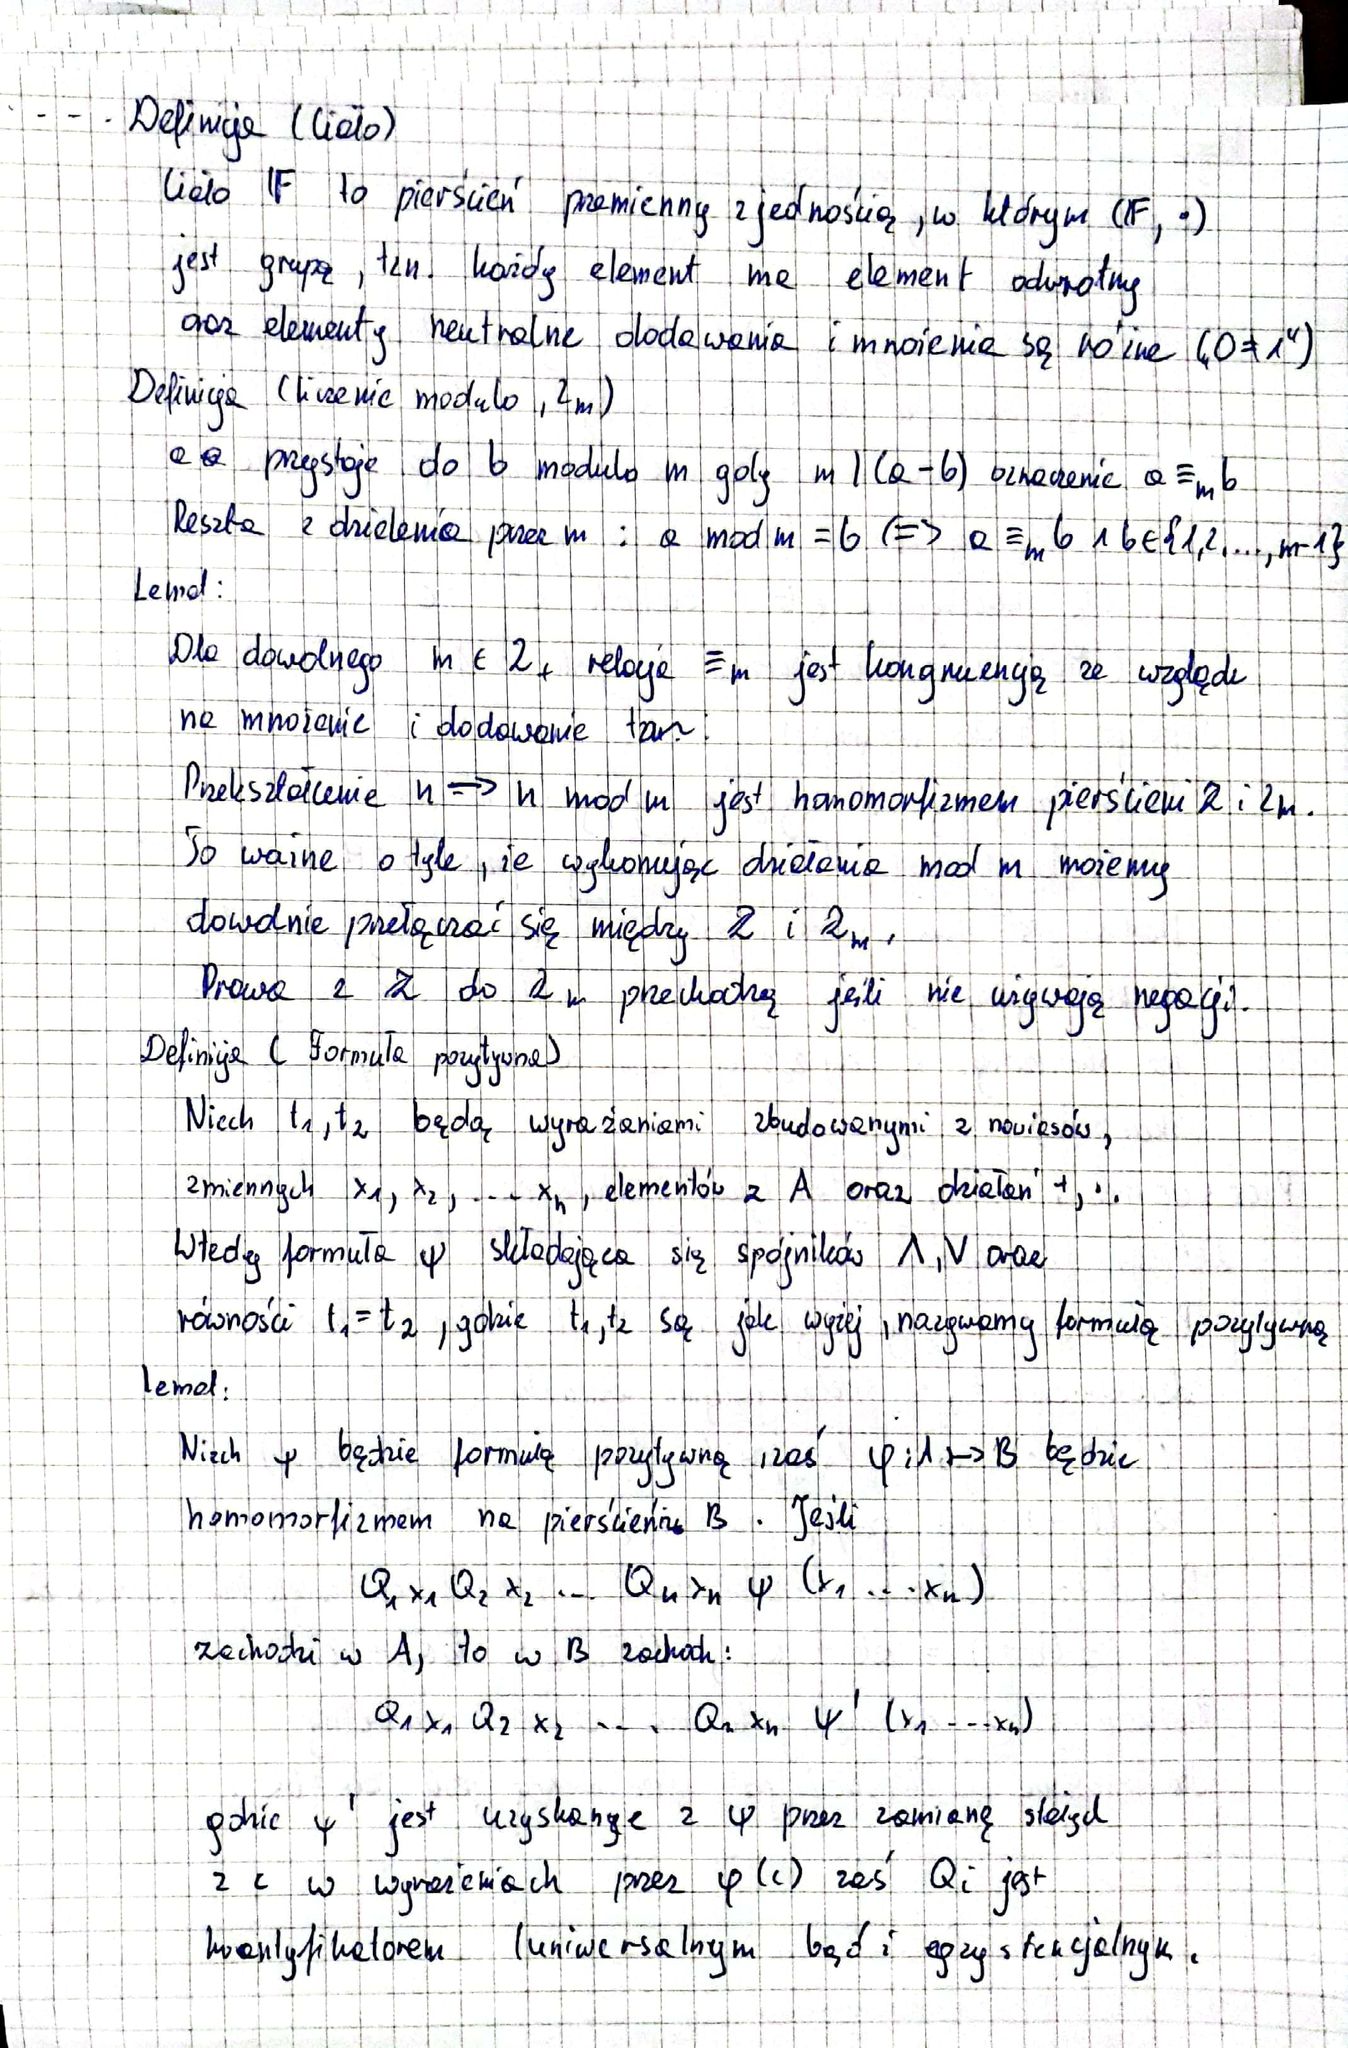 Definicja (Ciało)
Ciało F to pierścień przemienny z jednością, w którym (F, ·)
jest grupą, tzn. każdy element ma element odwrotny
oraz elementy neutralne dodawania i mnożenia są różne („0 ≠ 1")
Definicja (liczenie modulo, ℤm)
a przystaje do b modulo m gdy m | (a - b) oznaczenie a ≡m b
Reszta z dzielenia przez m : a mod m = b <=> a ≡m b ∧ b ∈ {1,2,...,m-1}
Lemat:
Dla dowolnego m ∈ ℤ+ relacja ≡m jest kongruencją ze względu
na mnożenie i dodawanie tzn:
Przekształcenie n => n mod m jest homomorfizmem pierścieni ℤ i ℤm.
To ważne o tyle, że wykonując działania mod m możemy
dowolnie przełączać się między ℤ i ℤm.
Prawa z ℤ do ℤm przechodzą jeśli nie używają negacji.
Definicja (Formuła pozytywna)
Niech t1, t2 będą wyrażaniami zbudowanymi z nawiasów,
zmiennych x1, x2, .... xn, elementów z A oraz działań +, ·.
Wtedy formuła ψ składająca się spójników ∧, ∨ oraz
równości t1 = t2, gdzie t1, t2 są jak wyżej, nazywamy formułą pozytywną
Lemat:
Niech ψ będzie formułą pozytywną, zaś φ: A ↦ B będzie
homomorfizmem na pierścień B. Jeśli
Q1 x1 Q2 x2 ... Qn xn ψ (x1 .... xn)
zachodzi w A, to w B zachodzi:
Q1 x1 Q2 x2 .... Qn xn ψ' (x1 ... xn)
gdzie ψ' jest uzyskane z ψ przez zamianę stałych
z c w wyrażeniach przez φ(c) zaś Qi jest
kwantyfikatorem (uniwersalnym bądź egzystencjalnym.